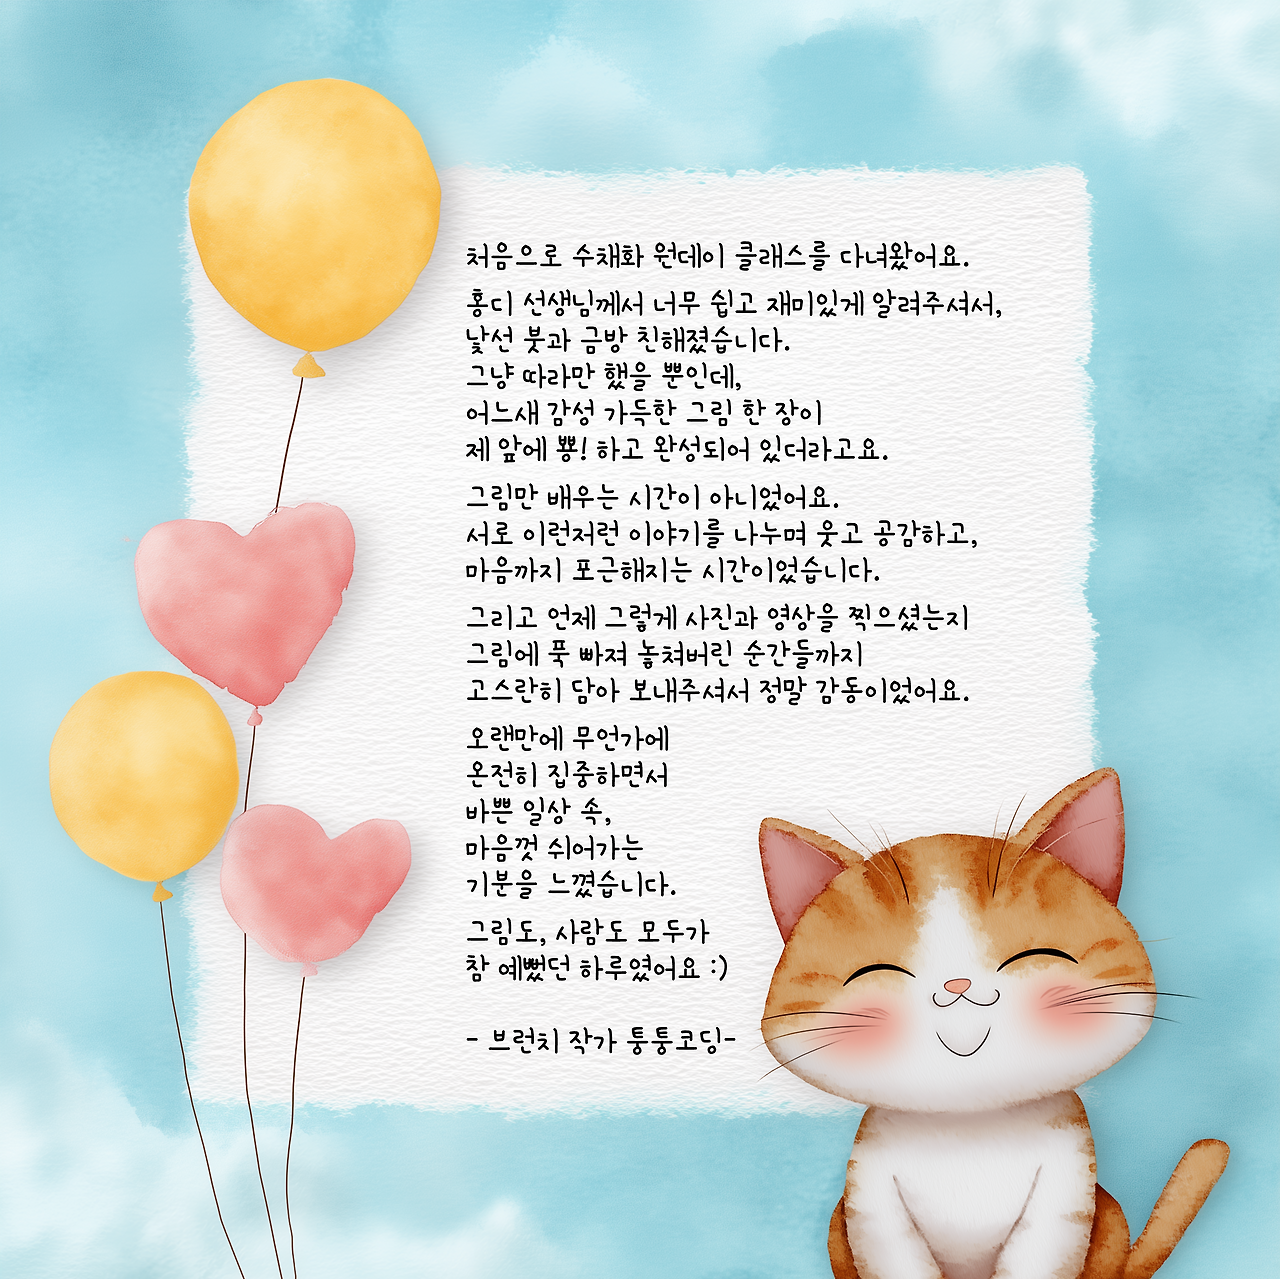 처음으로 수채화 원데이 클래스를 다녀왔어요.
홍디 선생님께서 너무 쉽고 재미있게 알려주셔서,
낯선 붓과 금방 친해졌습니다.
그냥 따라만 했을 뿐인데,
어느새 감성 가득한 그림 한 장이
제 앞에 뿅! 하고 완성되어 있더라고요.
그림만 배우는 시간이 아니었어요.
서로 이런저런 이야기를 나누며 웃고 공감하고,
마음까지 포근해지는 시간이었습니다.
그리고 언제 그렇게 사진과 영상을 찍으셨는지
그림에 푹 빠져 놓쳐버린 순간들까지
고스란히 담아 보내주셔서 정말 감동이었어요.
오랜만에 무언가에
온전히 집중하면서
바쁜 일상 속,
마음껏 쉬어가는
기분을 느꼈습니다.
그림도, 사람도 모두가
참 예뻤던 하루였어요 :)
- 브런치 작가 퉁퉁코딩-